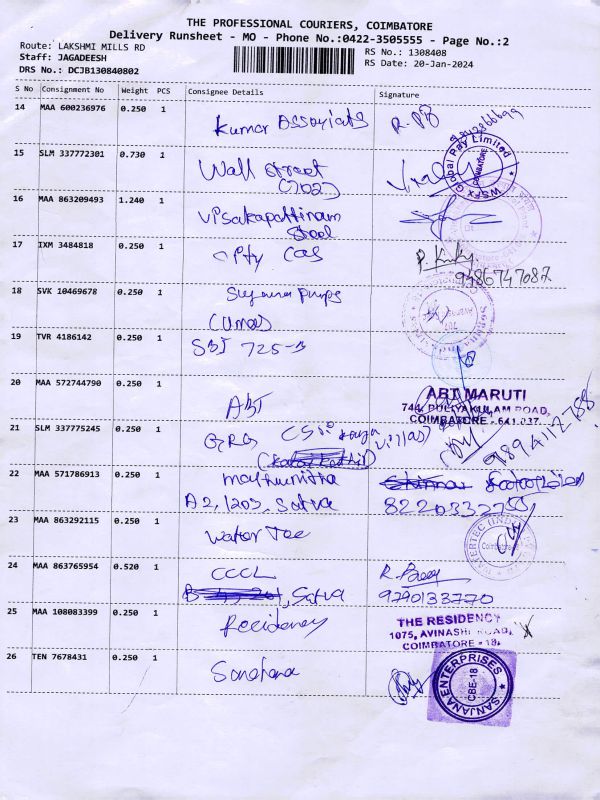 THE PROFESSIONAL COURIERS, COIMBATORE
Delivery Runsheet - MO - Phone No.:0422-3505555 - Page No.:2
Route: LAKSHMI MILLS RD
RS No.: 1308408
Staff: JAGADEESH
RS Date: 20-Jan-2024
DRS No.: DCJB130840802
S No Consignment No Weight PCS Consignee Details Signature
14 MAA 600236976 0.250 1 Kumar Associats
15 SLM 337772301 0.730 1 Wall street
(702)
WSFx Global Pay Limited
COIMBATORE
16 MAA 863209493 1.240 1 Visakapattinam
Steel
17 IXM 3484818 0.250 1 City Cas
9486747087
18 SVK 10469678 0.250 1 Suguna Pumps
(Umas)
19 TVR 4186142 0.250 1 SBI 725-B
20 MAA 572744790 0.250 1 ABT
ABT MARUTI
744, PULIYAKULAM ROAD,
COIMBATORE - 641 037.
21 SLM 337775245 0.250 1 GRG
9894112788
22 MAA 571786913 0.250 1 Mathumitha
A2, 1203, Satva
8220332755
23 MAA 863292115 0.250 1 Water Tec
24 MAA 863765954 0.520 1 CCCL
Satva
9790133770
25 MAA 108083399 0.250 1 Recidency
THE RESIDENCY
1075, AVINASHI ROAD,
COIMBATORE - 18.
26 TEN 7678431 0.250 1 Sanahana
SANJANA ENTERPRISES
CBE-18